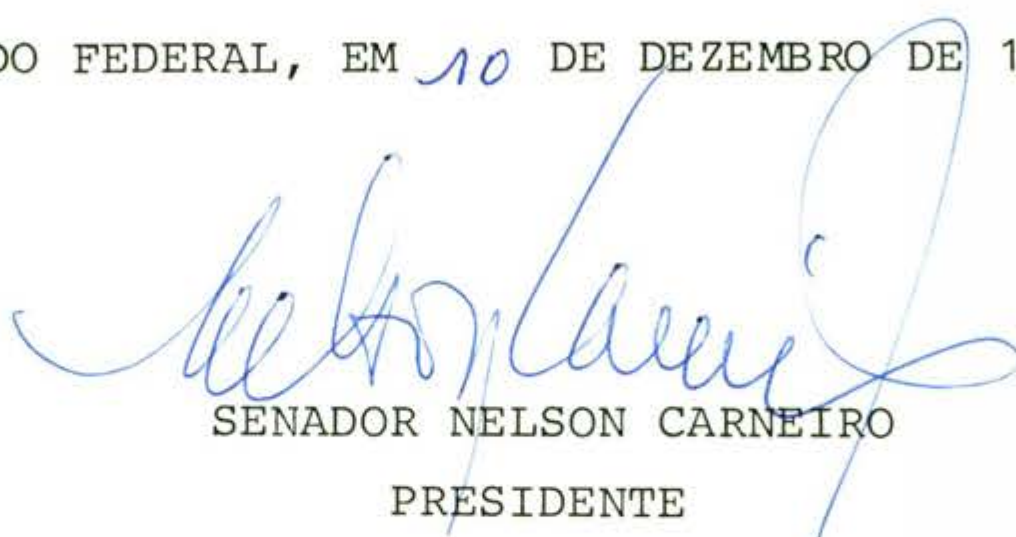 DO FEDERAL, EM 10 DE DEZEMBRO DE 1
Nelson Carneiro
SENADOR NELSON CARNEIRO
PRESIDENTE